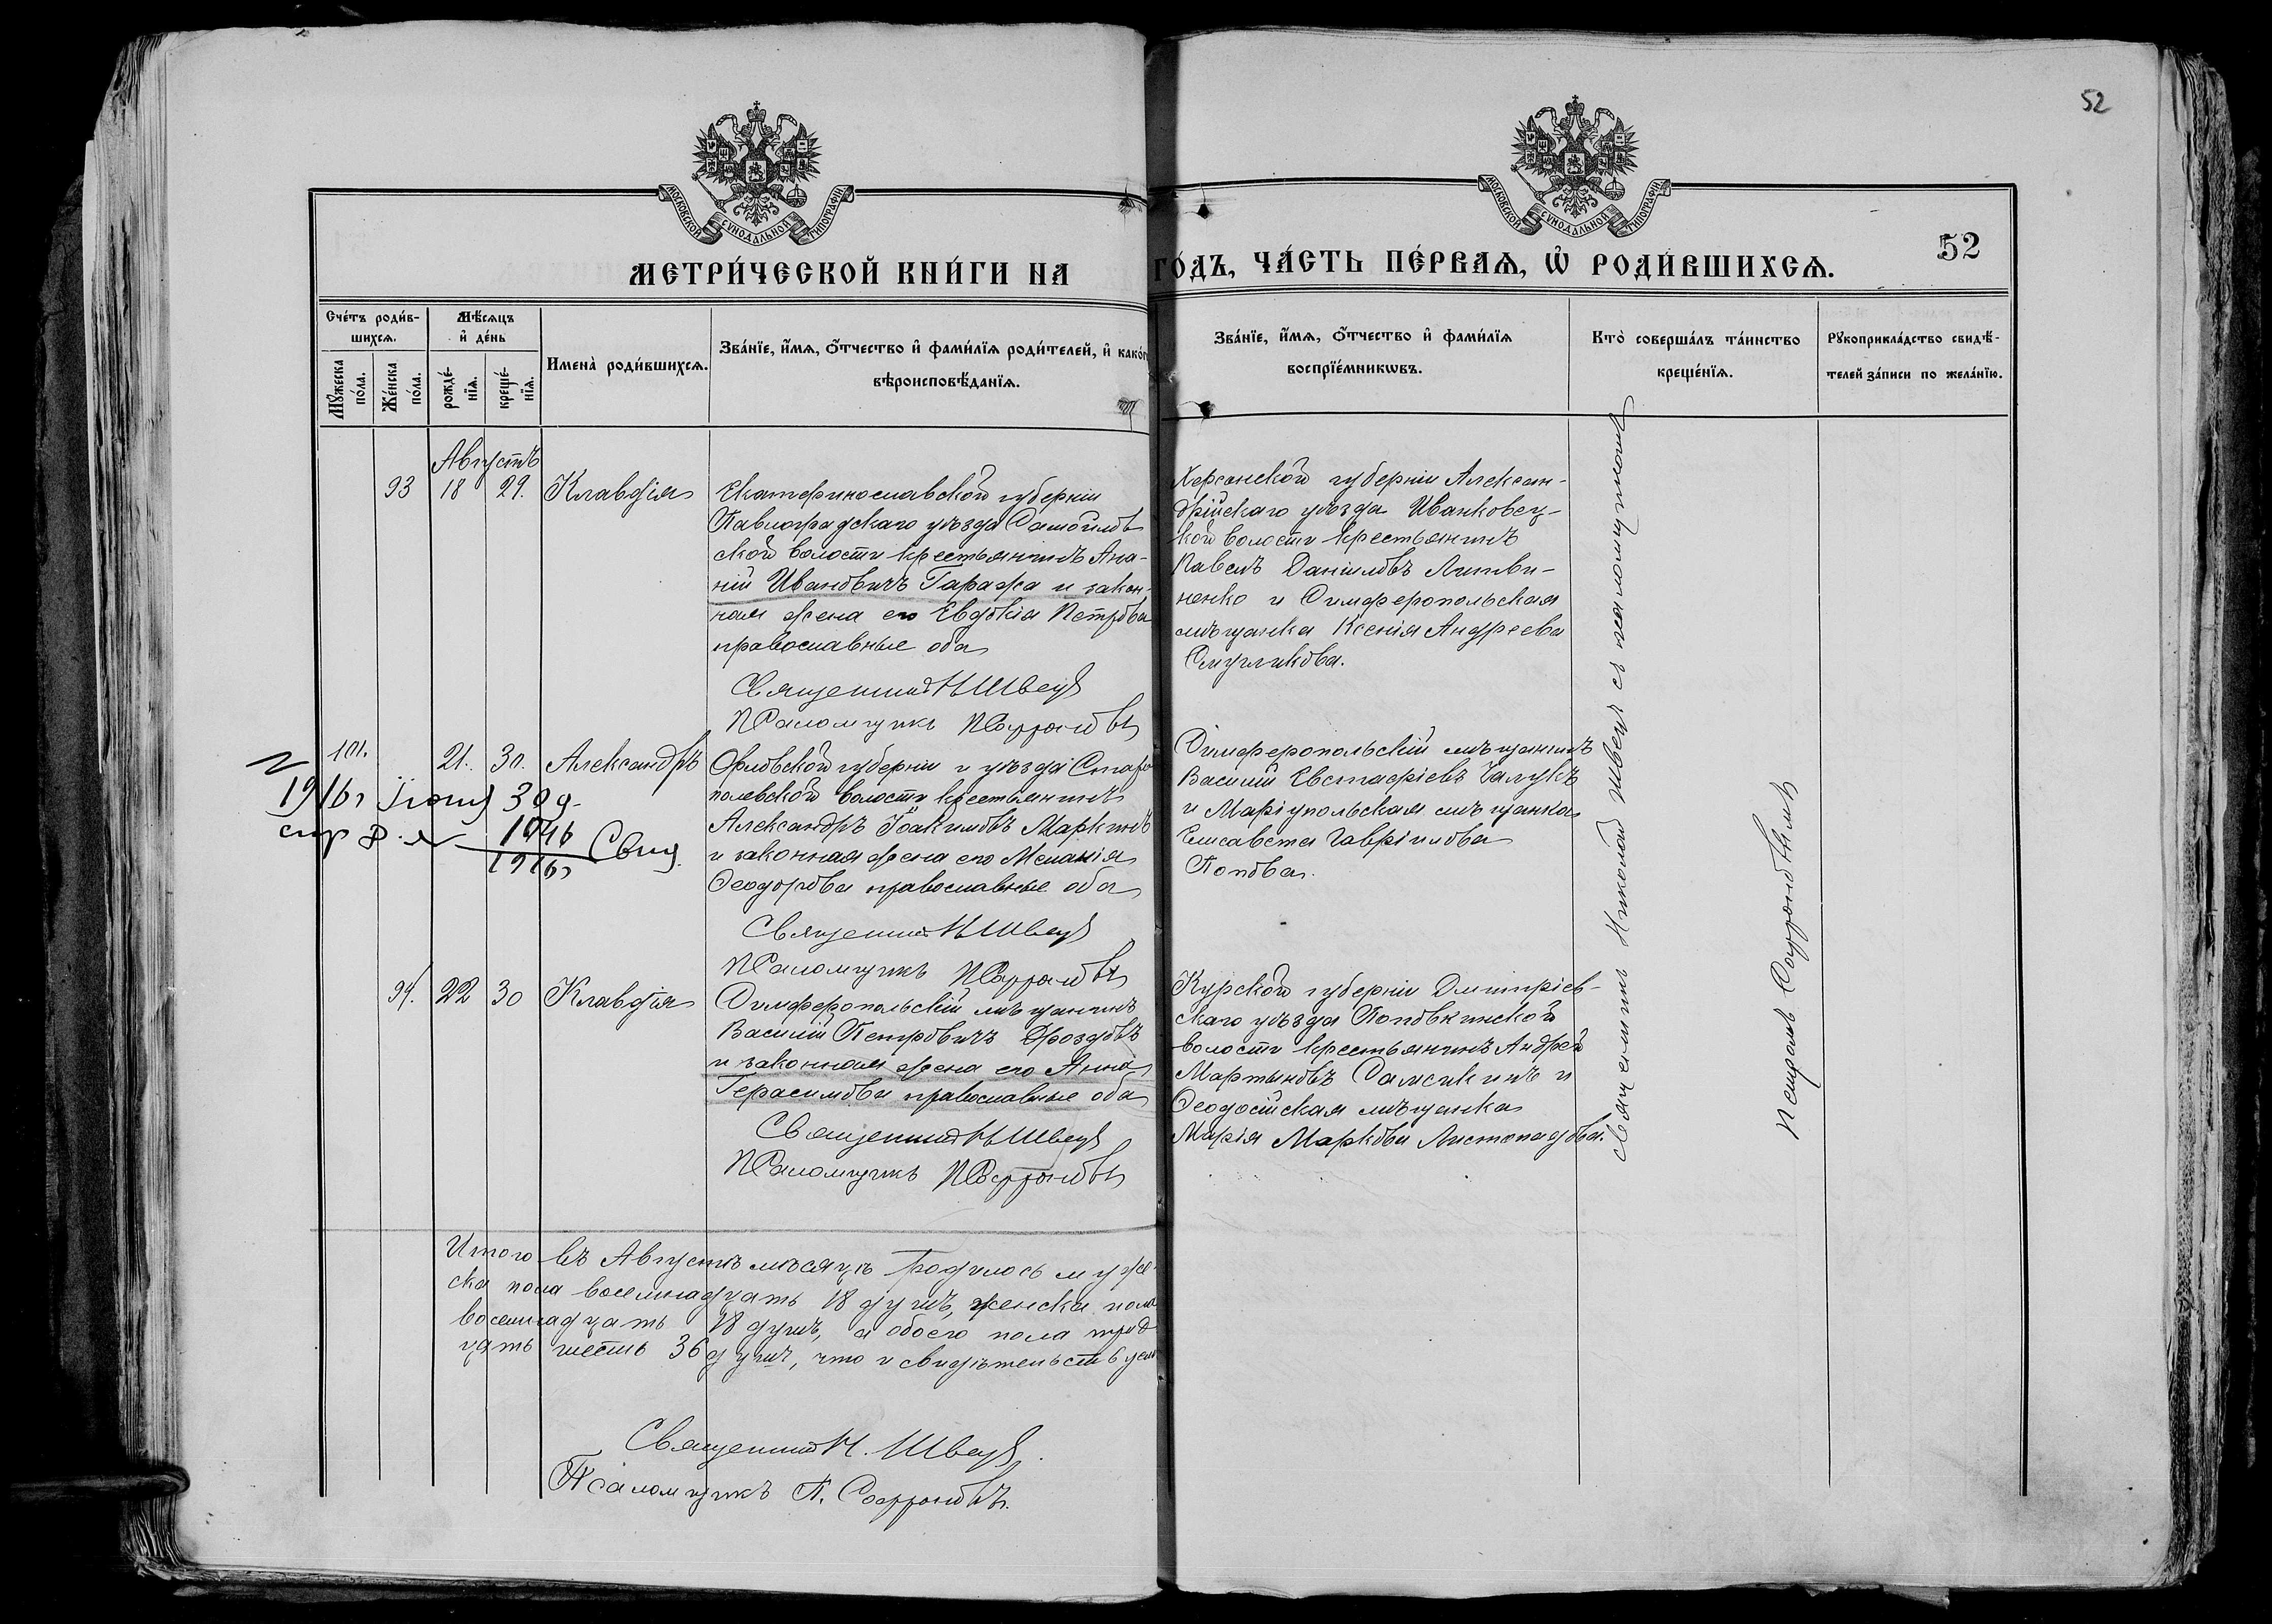 52
МОСКОВСКОЙ СѴНОДАЛЬНОЙ ТИПОГРАФІИ
МОСКОВСКОЙ СѴНОДАЛЬНОЙ ТИПОГРАФІИ
МЕТРИ́ЧЕСКОЙ КНИ́ГИ НА ГО́ДЪ, ЧА́СТЬ ПЕ́РВАѦ, Ѡ҆ РОДИ́ВШИХСѦ.
52
Сче́тъ роди́в-
шихсѧ.
Мꙋ́жеска по́ла.
Же́нска по́ла.
Мѣ́сѧцъ
и҆ де́нь
рожде́-
нїѧ.
креще́-
нїѧ.
И҆мена̀ роди́вшихсѧ.
Зва́нїе, и҆́мѧ, ѻ҆́тчество и҆ фами́лїѧ роди́телей, и҆ како́г
вѣроисповѣ́данїѧ.
Зва́нїе, и҆́мѧ, ѻ҆́тчество и҆ фами́лїѧ
воспрїе́мникѡвъ.
Кто̀ соверша́лъ та́инство
креще́нїѧ.
Рꙋкоприкла́дство свидѣ́-
телей за́писи по жела́нїю.
Августъ
93 18 29. Клавдія
Екатеринославской губерніи
Павлоградскаго уѣзда Самойлов
ской волости крестьянинъ Ана-
ній Ивановичъ Гаража и закон-
ная жена его Евдокія Петрова
православные оба
Священник Н Швец
Псаломщикъ П Софронов
Херсонской губерніи Алексан-
дрійскаго уѣзда Иванковец-
кой волости крестьянинъ
Павелъ Даніиловъ Литви-
ненко и Симферопольская
мѣщанка Ксенія Андреева
101. 21. 30. Александръ
1916 г Іюня 30 д.
1916 г
Орловской губерніи и уѣзда Старо
полевской волости крестьянинъ
Александръ Іоакимовъ Маркинъ
и законная жена его Меланія
Ѳеодорова православные оба
Священник Н Швец
Псаломщикъ П Софронов
Симферопольскій мѣщанинъ
Василій Евстафіевъ Чалукъ
и Маріупольская мѣщанка
Елисавета Гавріилова
Попова.
94. 22 30 Клавдія
Симферопольскій мѣщанинъ
Василій Петровичъ Дроздовъ
и законная жена его Анна
Герасимова православные оба
Священник Н Швец
Псаломщикъ П Софронов
Курской губерніи Дмитріев-
скаго уѣзда Поповкинской
волости крестьянинъ Андрей
Мартыновъ Самсикинъ и
Ѳеодосійская мѣщанка
Марія Маркова Листопадова.
Священникъ Николай Швецъ съ псаломщикомъ
Софроновымъ
Итого въ Августѣ мѣсяцѣ родилось муже-
ска пола восемнадцать 18 душъ, женска пола
восемнадцать 18 душъ, а обоего пола трид
цать шесть 36 душъ, что и свидѣтельствуем
Священник Н. Швец.
Псаломщикъ П. Софроновъ.